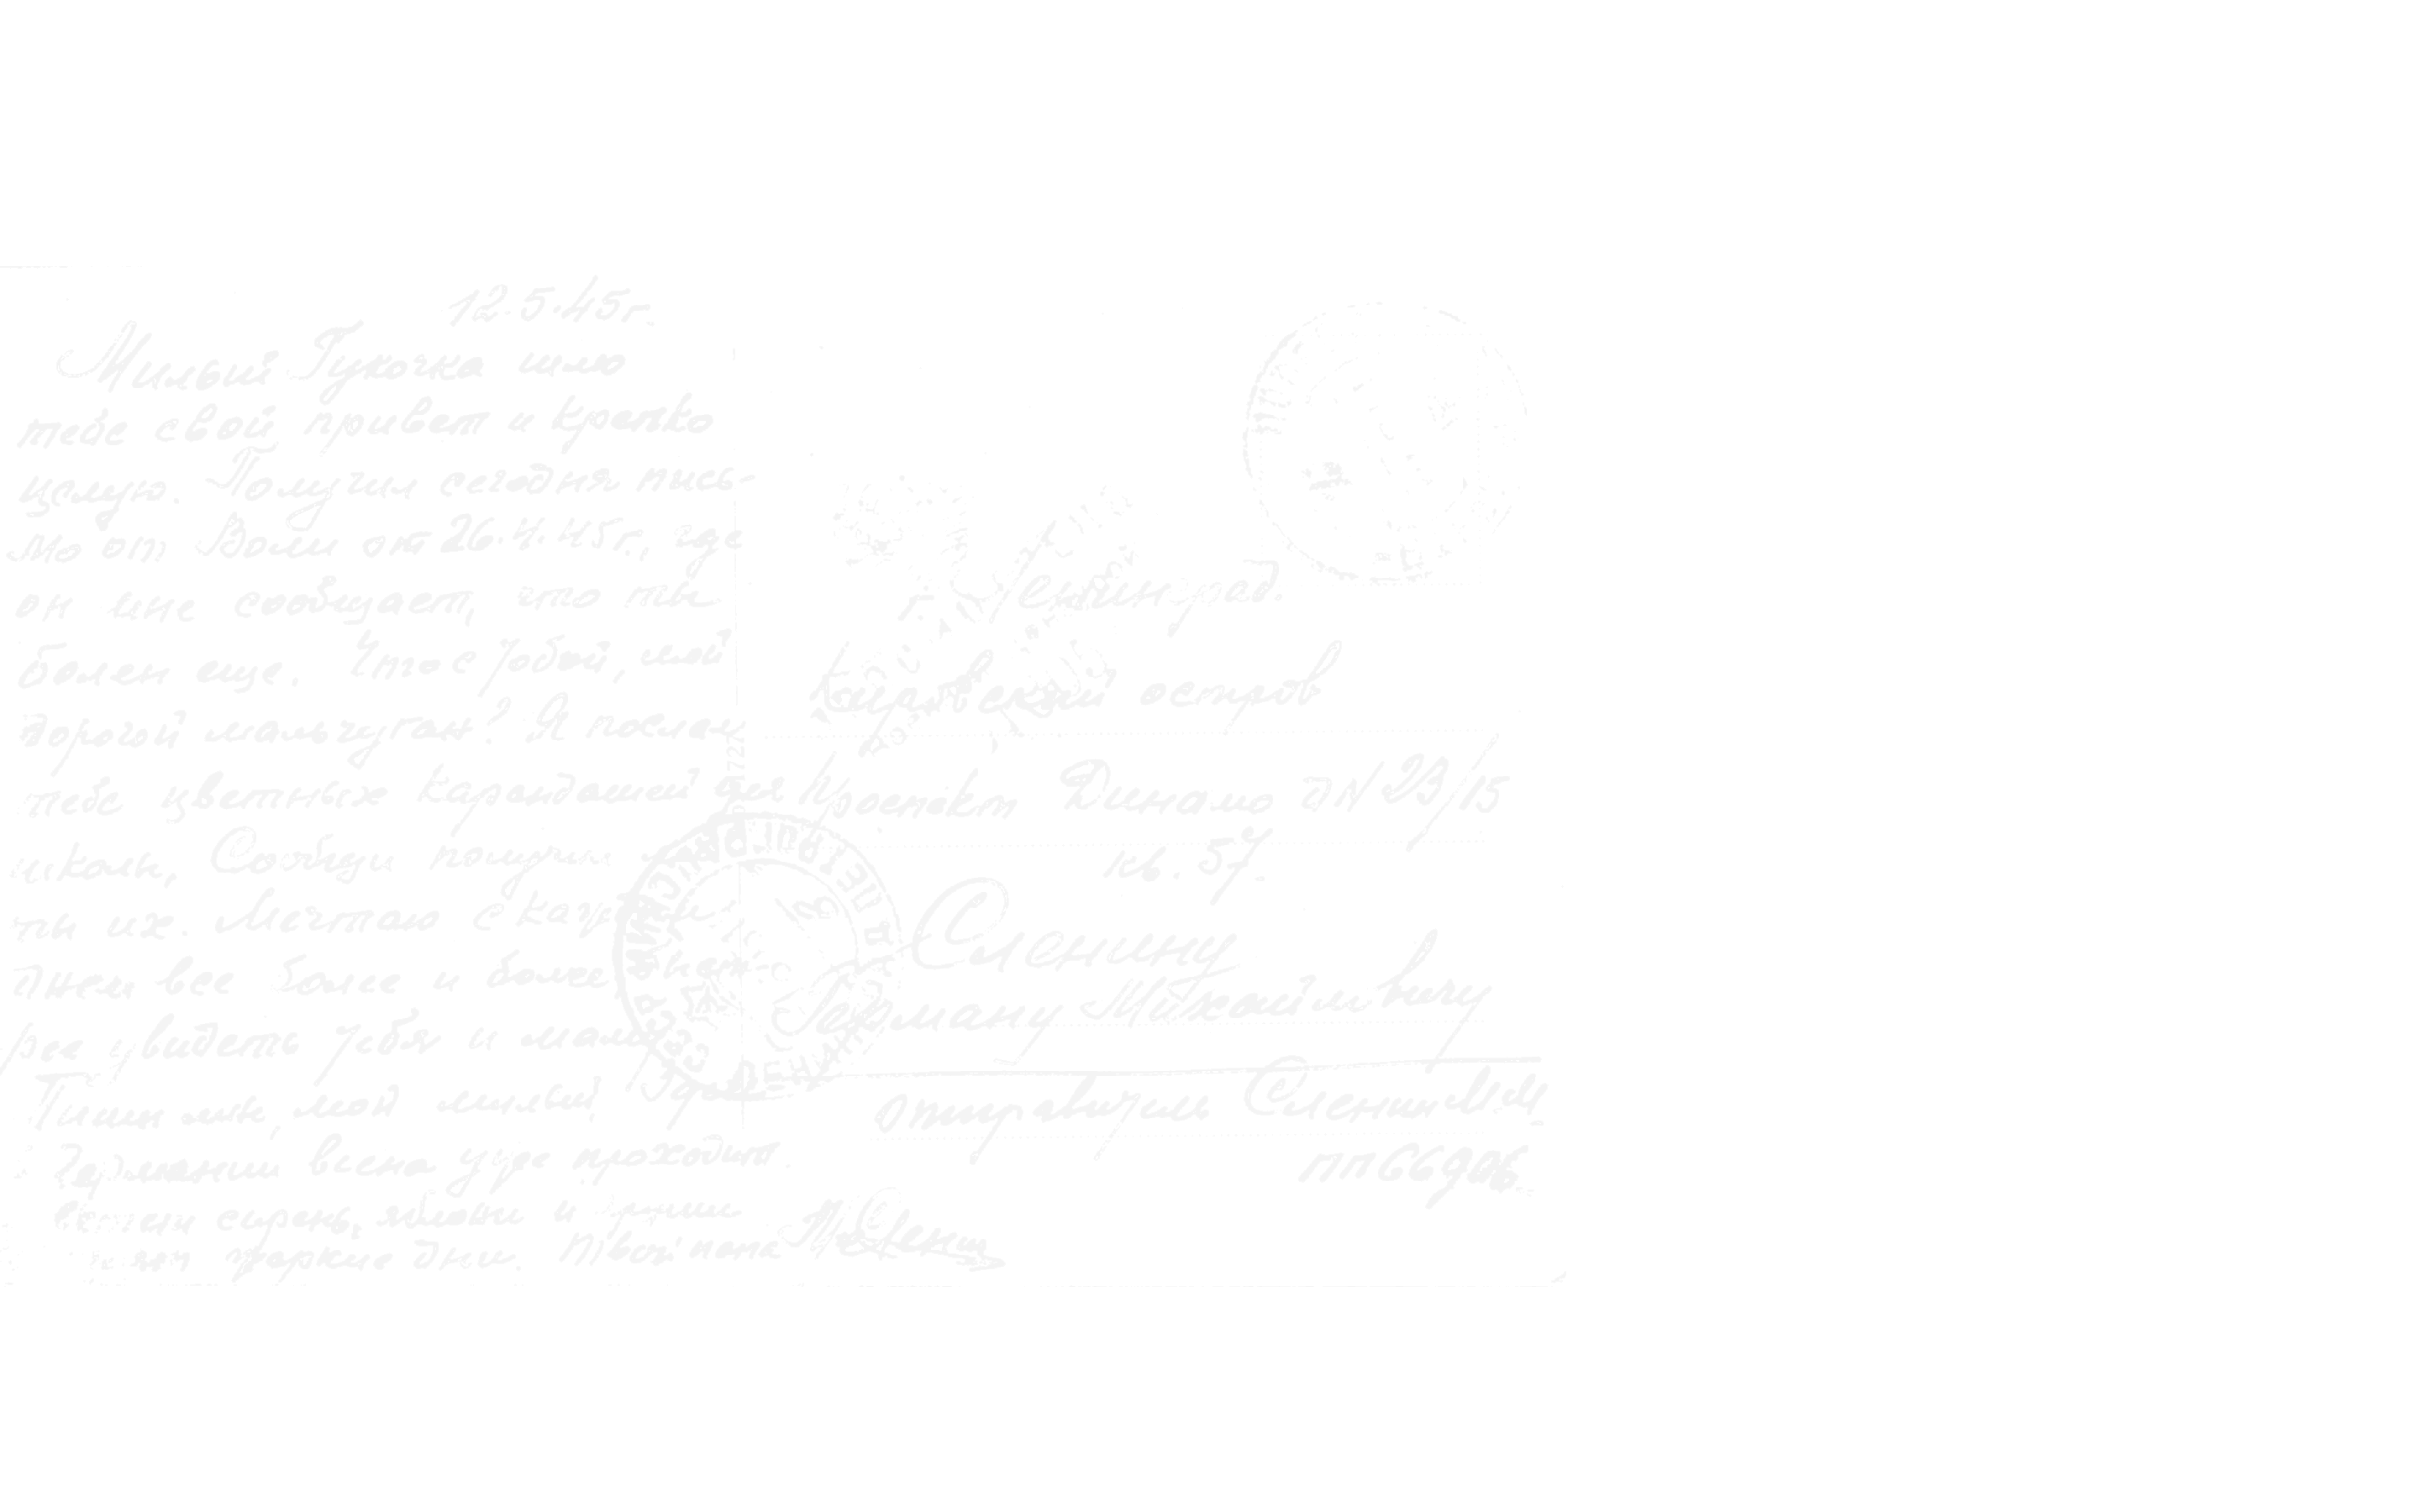 12.5.45г.
Милый Гукочка шлю
тебе свой привет и крепко
целую. Получил сегодня пись-
мо от Воли от 26.4.45г., где
он мне сообщает, что ты
болен еще. Что с тобой, мой
дорогой мальчуган? Я послал
тебе цветных карандашей для
школы. Сообщи получил
ли их. Мечтаю с каждым
днем все более и более
увидеть тебя и маму.
Пиши мне, мой милый
Германии весна уже проходит.
сирень, яблони и
жаркие дни. Твой папа МСленин
Ленинград.
остров
Проспект Динамо д№ 23/15
кв. 54.
Сленину
Герману Михайловичу
Отправитель Сленин М.И.
пп 66906